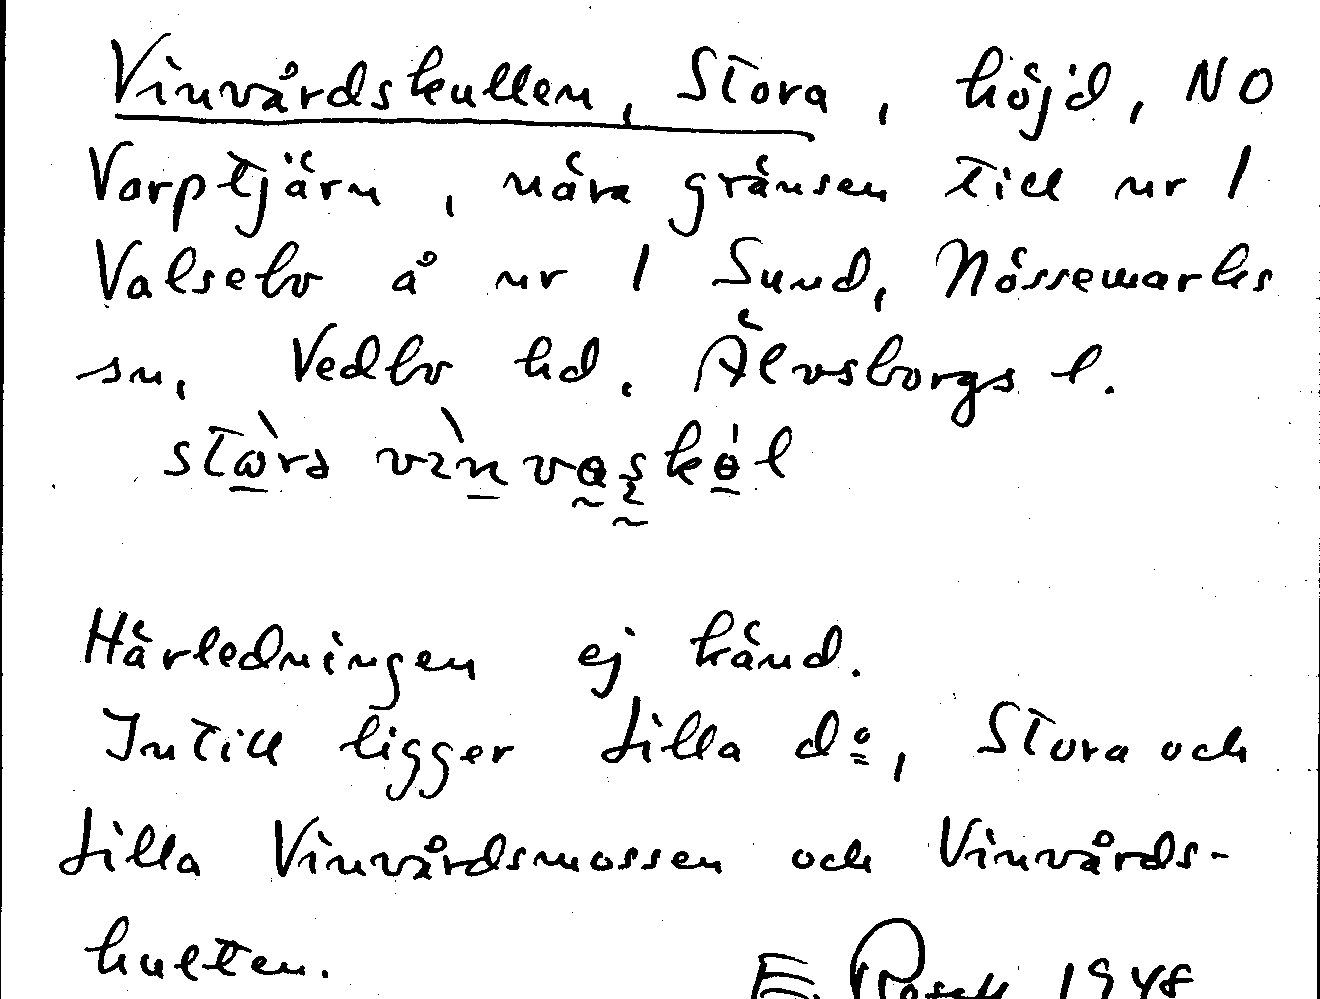 Vinvårdskullen, Stora, höjd, NO
Vorptjärn, nära gränsen till nr 1
Valsebo å nr 1 Sund, Nössemarks
sn, Vedbo hd, Älvsborgs l.
Härledningen ej känd.
Intill ligger Lilla do, Stora och
Lilla Vinvårdsmossen och Vinvårds-
hulten.
E. Rosell 1948